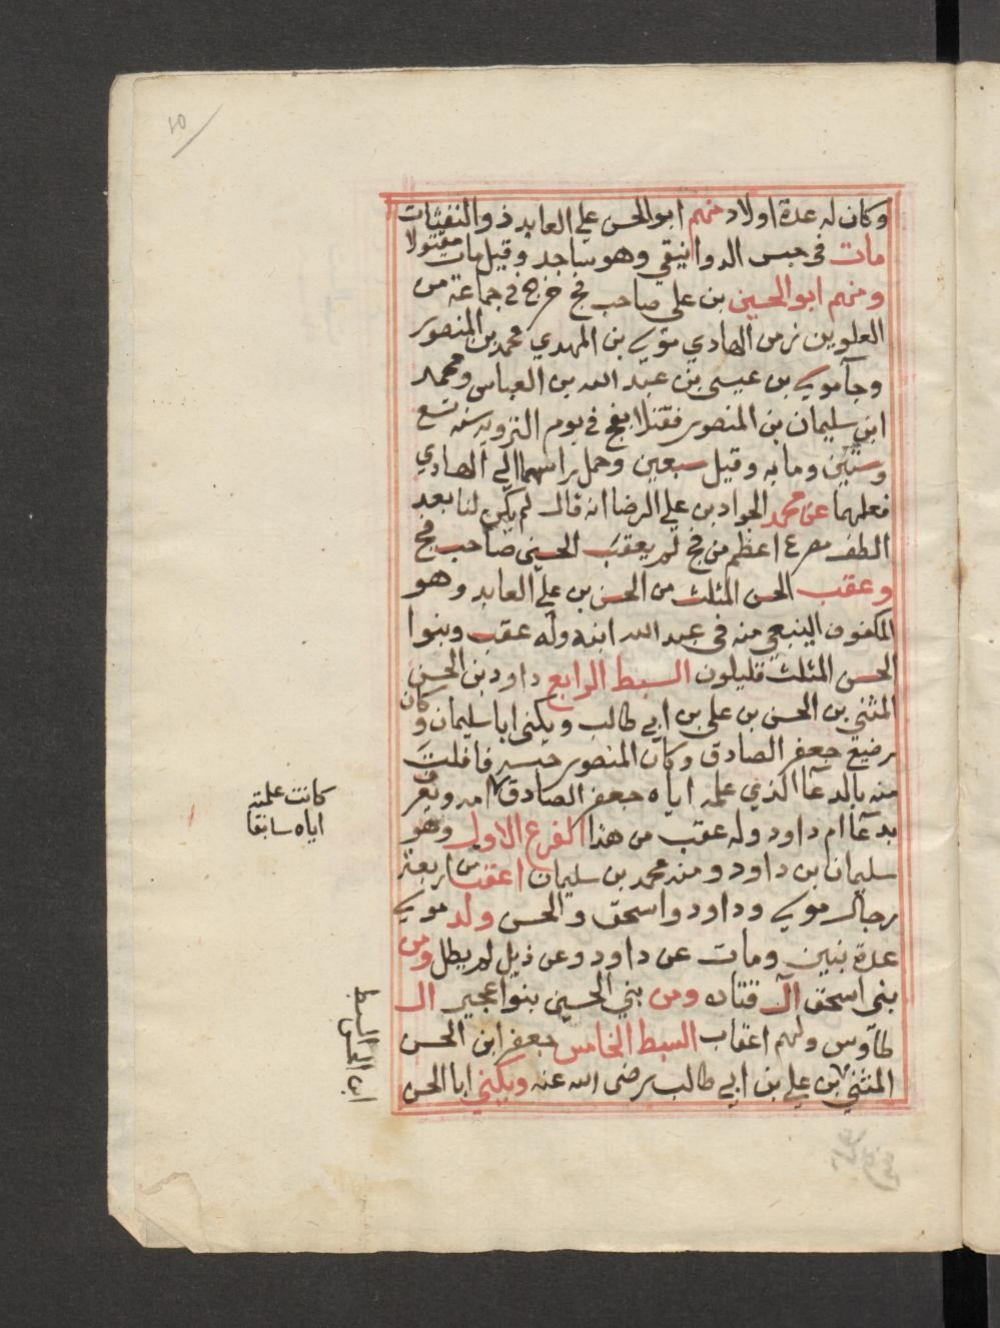 وكان له عدة اولاد منهم ابو الحسن علي العابد ذو الثفنات
مات في حبس الدوانيقي وهو ساجد وقيل مات مقتولا
ومنهم ابو الحسين بن علي صاحب فخ خرج في جماعة من
العلويين زمن الهادي موسى بن المهدي محمد بن المنصور
وجآ موسى بن عيسى بن عبد الله بن العباس ومحمد
ابن سليمان بن المنصور فقتلا بفخ في يوم التروية سنة تسع
وستين ومايه وقيل سبعين وحمل براسهما الى الهادي
فعلهما عن محمد الجواد بن علي الرضا انه قال لم يكن لنا بعد
الطف مصرع اعظم من فخ لم يعقب الحسن صاحب فخ
وعقب الحسن المثلث من الحسن بن علي العابد وهو
المكفوف الينبعي منه في عبد الله ابنه وله عقب وبنوا
الحسن المثلث قليلون السبط الرابع داود بن الحسن
المثني بن الحسن بن علي بن ابي طالب ويكني ابا سليمان وكان
رضيع جعفر الصادق وكان المنصور حبسه فافلت
منه بالدعآ الذي علمه اياه جعفر الصادق امه ويعرف
بدعآ ام داود وله عقب من هذا الفرع الاول وهو
سليمان بن داود ومنه محمد بن سليمان اعقب من اربعة
رجال موسى وداود واسحق والحسن ولد موسى
عدة بنين ومات عن داود وعن ذيل لم يطل ومن
بني اسحق آل قتاده ومن بني الحسين بنوا عجير ال
طآوس ولهم اعقاب السبط الخامس جعفر ابن الحسن
المثني بن علي بن ابي طالب رضى الله عنه ويكني ابا الحسن
كانت علمته
اياه سابقا
ابن الحسن السبط